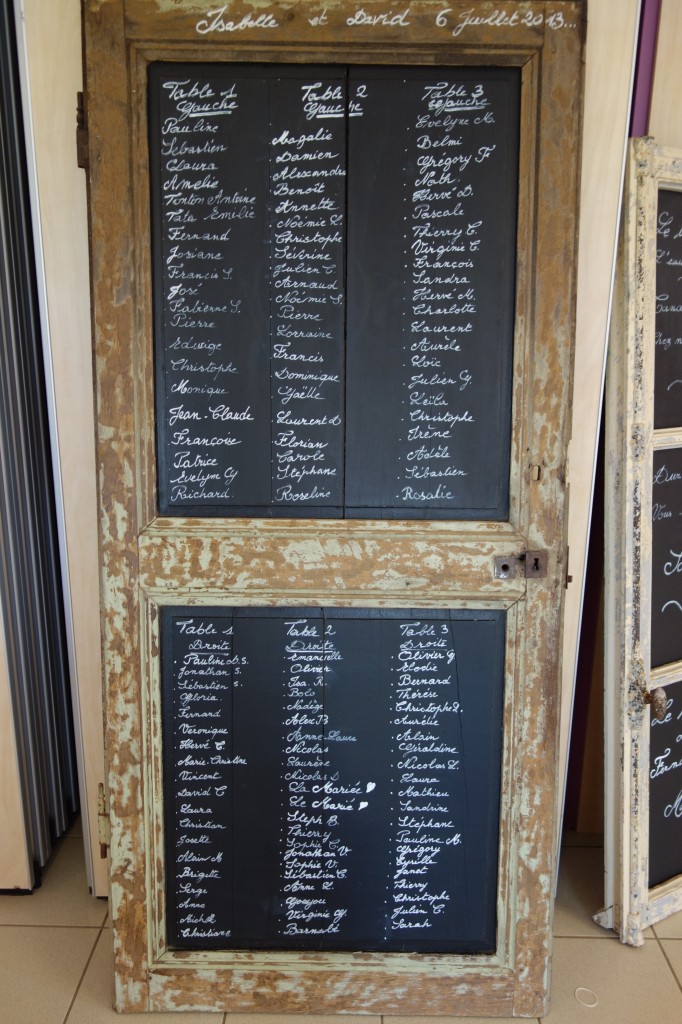 Isabelle et David 6 Juillet 2013...
Table 1
Gauche
Pauline
Sébastien
Laura
Amélie
Tonton Antoine
Tata Emilie
Fernand
Josiane
Francis S.
José
Fabienne S.
Pierre
Edwige
Christophe
Monique
Jean-Claude
Françoise
Patrice
Evelyne G
Richard.
Table 2
Gauche
Magalie
. Damien
. Alexandra
. Benoît
. Annette
. Noémie L.
. Christophe
. Séverine
. Julien C.
. Arnaud
. Noémie S.
. Pierre
. Lorraine
. Francis
. Dominique
. Gaëlle
. Laurent D
. Florian
. Carole
. Stéphane
. Roseline
Table 3
Gauche
. Evelyne M.
. Belmi
. Grégory F.
. Nath.
. Hervé D.
. Pascale
. Thierry C.
. Virginie C.
. François
. Sandra
. Hervé M.
. Charlotte
. Laurent
. Aurèle
. Loïc
. Julien G.
. Leïla
. Christophe
. Irène
. Adèle
. Sébastien
. Rosalie
Table 1
Droite
. Pauline D.S.
. Jonathan S.
. Sébastien S.
. Gloria
. Fernand
. Veronique
. Hervé C
. Marie-Christine
. Vincent
. David C
. Laura
. Christian
. Josette
. Alain M
. Brigitte
. Serge
. Anna
. Michel
. Christiane
Table 2
Droite
. Emanuelle
. Olivier
. Isa. R.
. Bolo
. Nadège
. Alex B
. Anne-Laure
. Nicolas
. Laurène
. Nicolas D
. La Mariée
. Le Marié
. Steph B.
. Thierry
. Sophie C.
. Jonathan V.
. Sophie V.
. Sébastien C.
. Anne L.
. Gouyou
. Virginie G.
. Barnabé
Table 3
Droite
. Olivier G
. Elodie
. Bernard
. Thérèse
. Christophe L.
. Aurélie
. Alain
. Géraldine
. Nicolas L.
. Laura
. Mathieu
. Sandrine
. Stéphane
. Pauline M.
. Grégory
. Cyrille
. Janet
. Thierry
. Christophe
. Julien C.
. Sarah